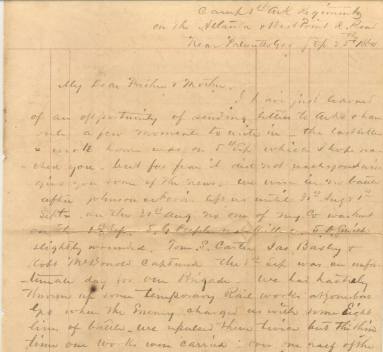 Camp 1st Ark Regiment
on the Atlanta & West Point R. Road
Near Palmetto Geo Sep 25th 1864
My Dear Father & Mother,
I have just learned
of an opportunity of sending letters to Arks & have
a few moments to write in — the last letter
I wrote home was on 5th Sep which I hope rea-
ched you. but for fear it did not reach you I will
give you some of the news. we were in no battle
after Johnson until 31st Aug & 1st
Sept. on the 31st Aug no one of my Co was hurt
on the 1st Sep. killed
slightly wounded. Tom S. Carter Jas Bailey &
McDonald Captured the 1st Sep was an unfor-
tunate day for our Brigade. We had hastily
thrown up some temporary Rail works
when the Enemy charged us with some Eight
lines of battle. we repulsed them twice but the third
time our works were carried.